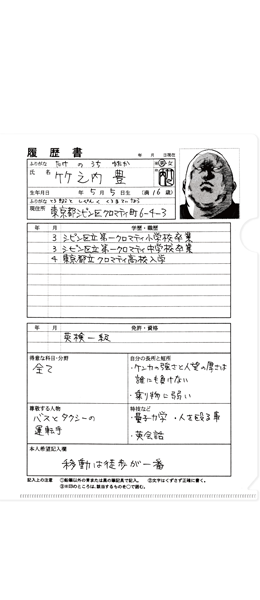 履歴書
年 月 日現在
ふりがな たけ の うち ゆたか
氏名 竹之内 豊
男・女
生年月日 年 5月 5日生 (満16歳)
現住所 東京都シビン区クロマティ町6-4-3
年 月 学歴・職歴
3 シビン区立第一クロマティ小学校 卒業
3 シビン区立第一クロマティ中学校 卒業
4 東京都立クロマティ高校入学
年 月 免許・資格
英検一級
得意な科目・分野
全て
自分の長所と短所
・ケンカの強さと人望の厚さは
誰にも負けない
・乗り物に弱い
尊敬する人物
バスとタクシーの
運転手
特技など
・量子力学 ・人を殴る事
・英会話
本人希望記入欄
移動は徒歩が一番
記入上の注意 ①鉛筆以外の青または黒の筆記具で記入。 ②文字はくずさず正確に書く。
③※印のところは、該当するものを○で囲む。